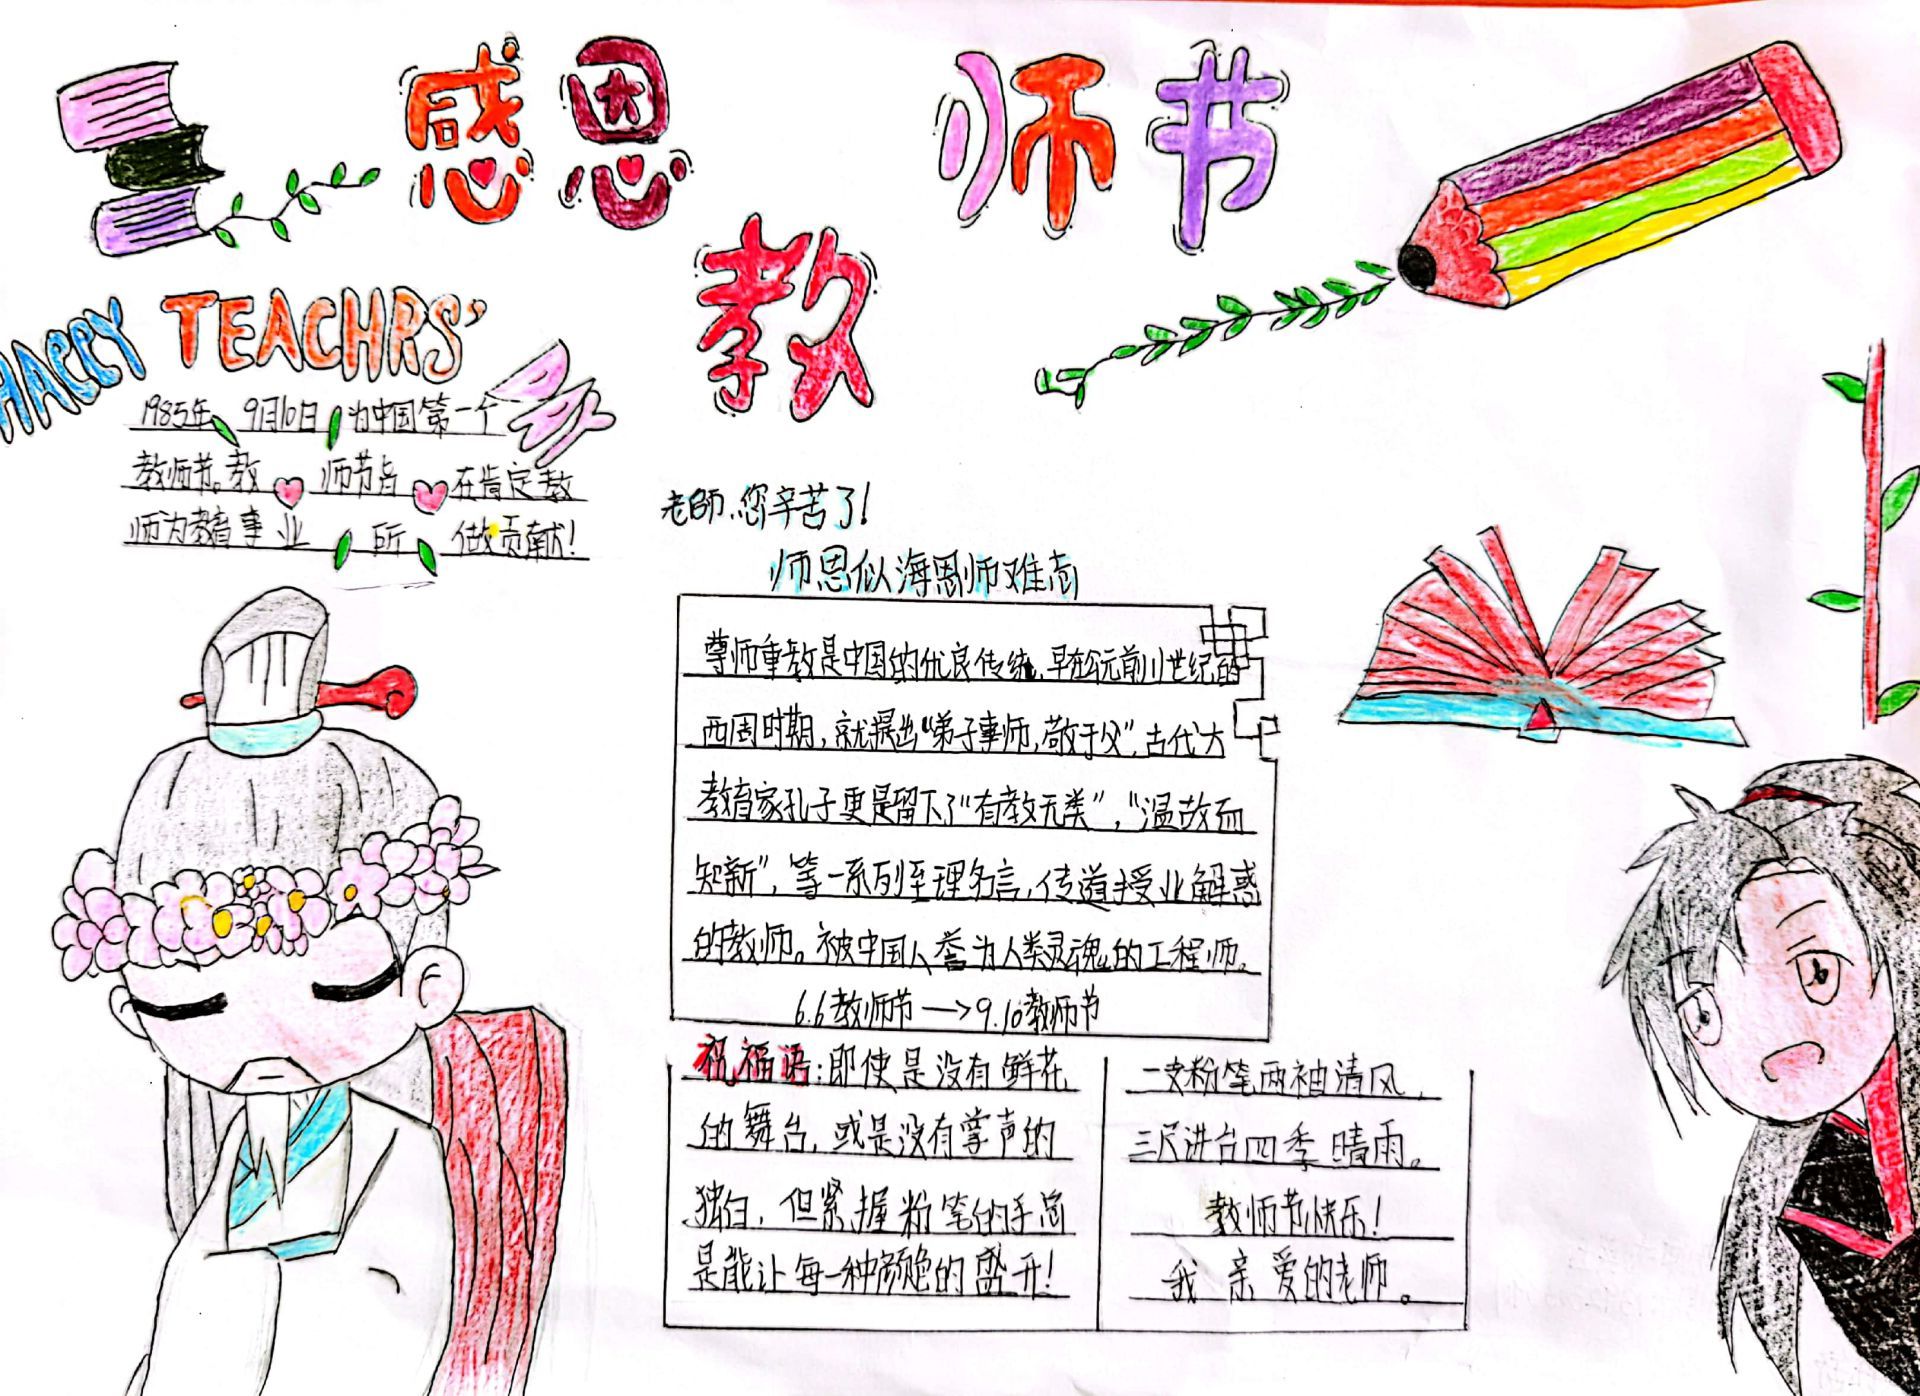 感恩教师节
HAPPY TEACHRS'
1985年 9月10日 为中国第一个
教师节。教 师节旨 在肯定教
师为教育事业 所 做贡献!
老師,您辛苦了!
师恩似海恩师难忘
尊师重教是中国的优良传统,早在公元前11世纪的
西周时期,就提出“弟子事师,敬于父”,古代大
教育家孔子更是留下了“有教无类”,“温故而
知新”,等一系列至理名言,传道授业解惑
的教师。被中国人誉为人类灵魂的工程师。
6.6教师节—>9.10教师节
祝福语:即使是没有鲜花
的舞台,或是没有掌声的
独白,但紧握粉笔的手总
是能让每一种颜色的盛开!
一支粉笔两袖清风,
三尺讲台四季晴雨。
教师节快乐!
我 亲爱的老师。